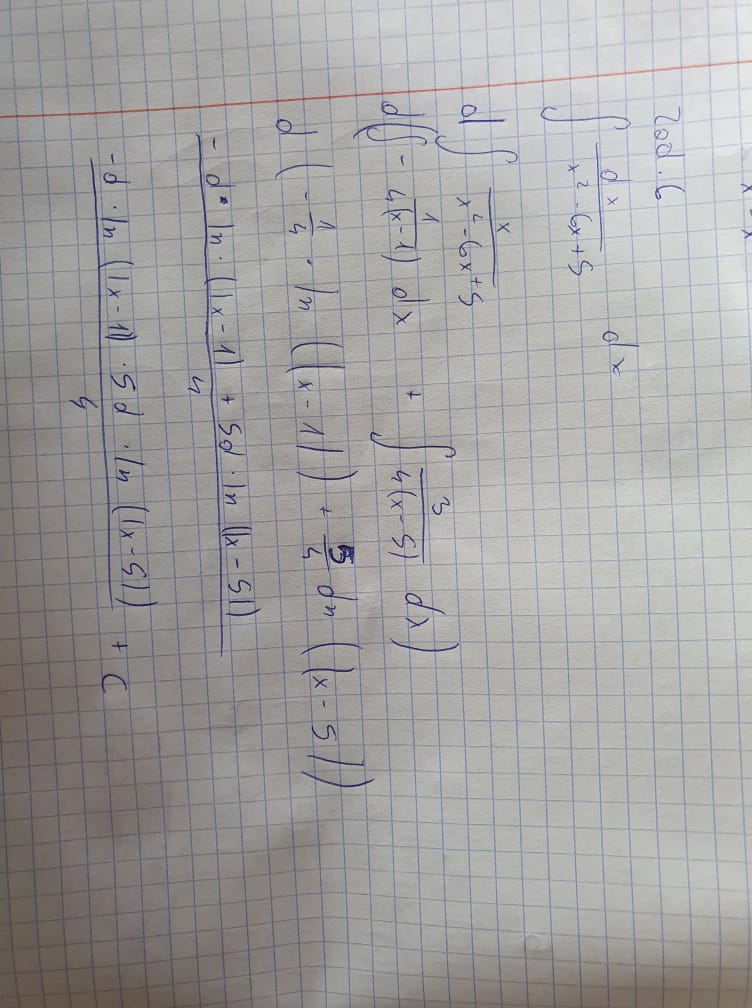 Zad. 6
∫ dx / (x² - 6x + 5) dx
d ∫ x / (x² - 6x + 5)
d (∫ - 1 / 4(x - 1) dx + ∫ 5 / 4(x - 5) dx)
d (- 1/4 · ln (|x - 1|) + 5/4 ln (|x - 5|))
- d · ln · (|x - 1|) + 5d · ln (|x - 5|) / 4
- d · ln (|x - 1|) · 5d · ln (|x - 5|) / 4 + C